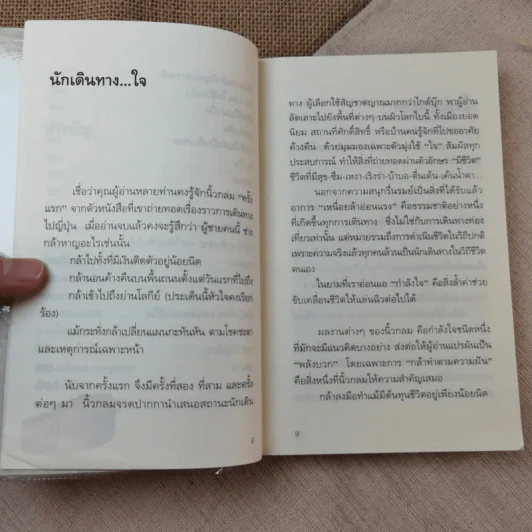 นักเดินทาง...ใจ
เชื่อว่าคุณผู้อ่านหลายท่านคงรู้จักนิ้วกลม “ครั้ง
แรก” จากตัวหนังสือที่เขาถ่ายทอดเรื่องราวการเดินทาง
ไปญี่ปุ่น เมื่ออ่านจบแล้วคงจะรู้สึกว่า ผู้ชายคนนี้ ช่าง
กล้าหาญอะไรเช่นนั้น
กล้าไปทั้งที่มีเงินติดตัวอยู่น้อยนิด
กล้านอนค้างคืนบนพื้นถนนตั้งแต่วันแรกที่ไปถึง
กล้าเข้าไปถึงย่านโลกีย์ (ประเด็นนี้หัวใจคงเรียก
ร้อง)
แม้กระทั่งกล้าเปลี่ยนแผนกะทันหัน ตามโชคชะตา
และเหตุการณ์เฉพาะหน้า
นับจากครั้งแรก จึงมีครั้งที่สอง ที่สาม และครั้ง
ต่อๆ มา นิ้วกลมจรดปากกานำเสนอสถานะนักเดิน
8
ทาง ผู้เลือกใช้สัญชาตญาณมากกว่าไกด์บุ๊ก พาผู้อ่าน
ลัดเลาะไปยังพื้นที่ต่างๆ บนผิวโลกใบนี้ ทั้งเมืองยอด
นิยม สถานที่ศักดิ์สิทธิ์ หรือบ้านคนรู้จักที่ไปขออาศัย
ค้างคืน ด้วยมุมมองเฉพาะตัวมุ่งใช้ “ใจ” สัมผัสทุก
ประสบการณ์ ทำให้สิ่งที่ถ่ายทอดผ่านตัวอักษร “มีชีวิต”
ชีวิตที่มีสุข-ขึม-เหงา-เริงร่า-บ้าบอ-ตื่นเต้น-เต้นน้ำตา...
นอกจากความสนุกรื่นรมย์เป็นสิ่งที่ได้รับแล้ว
อาการ “เหนื่อยล้าอ่อนแรง” คือธรรมชาติอย่างหนึ่ง
ที่เกิดขึ้นทุกการเดินทาง ซึ่งไม่ใช่กับการเดินทางท่อง
เที่ยวเท่านั้น แต่หมายรวมถึงการดำเนินชีวิตในวิถีปกติ
เพราะความจริงแล้วทุกคนล้วนเป็นนักเดินทางในวิถีชีวิต
ตนเอง
ในยามที่เราอ่อนแอ “กำลังใจ” คือสิ่งล้ำค่าช่วย
ขับเคลื่อนชีวิตให้แล่นฉิวต่อไปได้
ผลงานต่างๆ ของนิ้วกลม คือกำลังใจชนิดหนึ่ง
ที่มักจะมีแนวคิดบางอย่าง ส่งต่อให้ผู้อ่านแปรผันเป็น
“พลังบวก” โดยเฉพาะการ “กล้าทำตามความฝัน”
คือสิ่งหนึ่งที่นิ้วกลมให้ความสำคัญเสมอ
กล้าลงมือทำแม้มีต้นทุนชีวิตอยู่เพียงน้อยนิด
9